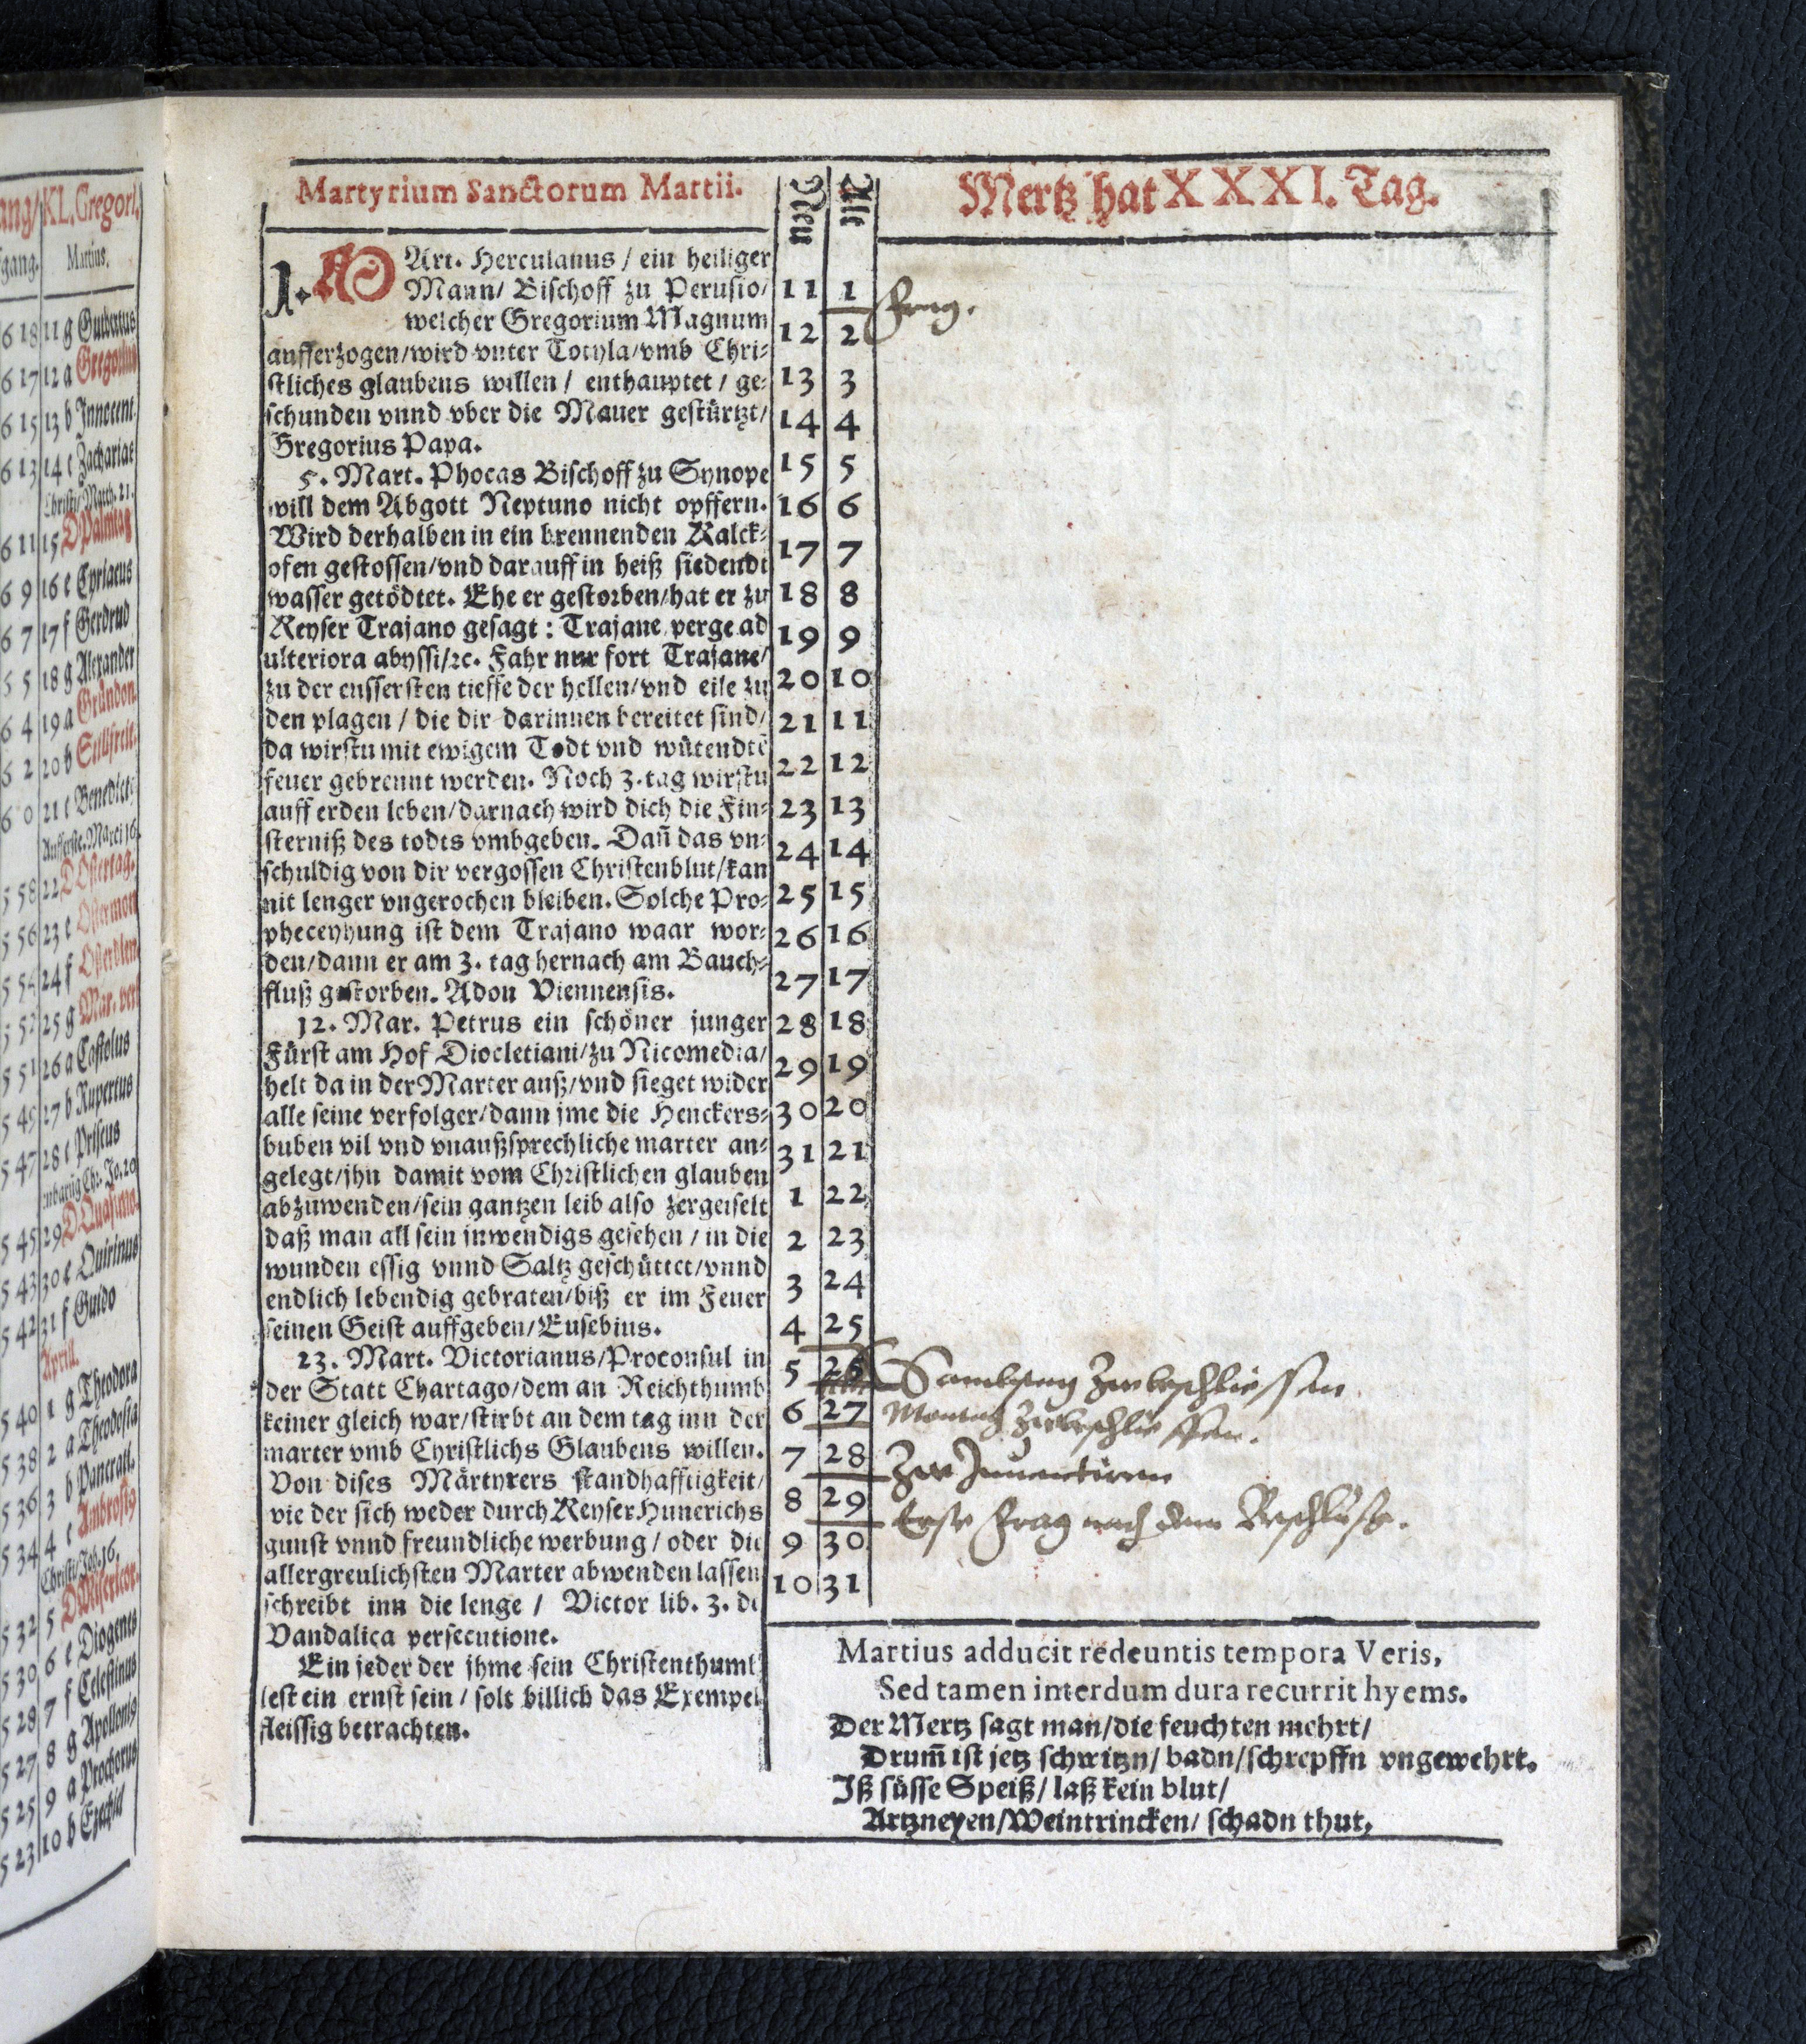 ang/ KL. Gregori.
gang. Martius.
6 18 11 g Gutbertus
6 17 12 a Gregorius
6 15 13 b Innocent.
6 13 14 c Zacharias
Christi/ Matth. 21.
6 11 15 D Palmtag
6 9 16 e Cyriacus
6 7 17 f Gerdrud
6 5 18 g Alexander
6 4 19 a Gründon.
6 2 20 b Stillfreit.
6 0 21 c Benedict
Aufferste. Marci 16.
5 58 22 D Ostertag.
5 56 23 e Ostermon
5 54 24 f
5 52 25 g Mar. ver
5 51 26 a Castolus
5 49 27 b Rupertus
5 47 28 c Priscus
Chr. Jo. 20
5 45 29 D Quasimo.
5 43 30 e Quirinus
5 42 31 f Guido
Aprill.
5 40 1 g Theodora
5 38 2 a Theodosia
5 36 3 b Pancrati.
5 34 4 c Ambrosig
Christi/ Joh. 16.
5 32 5 D Misericor.
5 30 6 e Diogenes
5 28 7 f Celestinus
5 27 8 g Apollonig
5 25 9 a Prochorus
5 23 10 b Ezechiel
Martyrium Sanctorum Martii.
1. MArt. Herculanus / ein heiliger
Mann/ Bischoff zu Perusio/
welcher Gregorium Magnum
aufferzogen/wird vnter Totyla/vmb Chri-
stliches glaubens willen / enthauptet / ge-
schunden vnnd vber die Mauer gestürtzt/
Gregorius Papa.
5. Mart. Phocas Bischoff zu Synope
will dem Abgott Neptuno nicht opffern.
Wird derhalben in ein brennenden Kalck-
ofen gestossen/vnd darauff in heiß siedendt
wasser getödtet. Ehe er gestorben/hat er zu
Keyser Trajano gesagt : Trajane perge ad
ulteriora abyssi/ꝛc. Fahr nur fort Trajane/
zu der eussersten tieffe der hellen/vnd eile zu
den plagen / die dir darinnen bereitet sind/
da wirstu mit ewigem Todt vnd wütendtē
feuer gebrennt werden. Noch 3. tag wirstu
auff erden leben/darnach wird dich die Fin-
sterniß des todts vmbgeben. Dañ das vn-
schuldig von dir vergossen Christenblut/kan
nit lenger vngerochen bleiben. Solche Pro-
pheceyhung ist dem Trajano waar wor-
den/dann er am 3. tag hernach am Bauch-
fluß gestorben. Adon Viennensis.
12. Mar. Petrus ein schöner junger
Fürst am Hof Diocletiani/zu Nicomedia/
helt da in der Marter auß/vnd sieget wider
alle seine verfolger/dann jme die Henckers-
buben vil vnd vnaußsprechliche marter an-
gelegt/jhn damit vom Christlichen glauben
abzuwenden/sein gantzen leib also zergeiselt
daß man all sein inwendigs gesehen / in die
wunden essig vnnd Saltz geschüttet/vnnd
endlich lebendig gebraten/biß er im Feuer
seinen Geist auffgeben/Eusebius.
23. Mart. Victorianus/Proconsul in
der Statt Chartago/dem an Reichthumb
keiner gleich war/stirbt an dem tag inn der
marter vmb Christlichs Glaubens willen.
Von dises Märtyrers standhafftigkeit/
vie der sich weder durch Keyser Hunerichs
gunst vnnd freundliche werbung / oder die
allergreulichsten Marter abwenden lassen
schreibt inn die lenge / Victor lib. 3. de
Vandalica persecutione.
Ein jeder der jhme sein Christenthumb
lest ein ernst sein / solt billich das Exempel
fleissig betrachten.
Neu Alte
11 1
12 2
13 3
14 4
15 5
16 6
17 7
18 8
19 9
20 10
21 11
22 12
23 13
24 14
25 15
26 16
27 17
28 18
29 19
30 20
31 21
1 22
2 23
3 24
4 25
5 26
6 27
7 28
8 29
9 30
10 31
Mertz hat XXXI. Tag.
Frag.
Sambstag Zubeschliessen
Montag Zubeschliessen.
Zu Inuentiren
Erste Frag nach dem Beschluß.
Martius adducit redeuntis tempora Veris,
Sed tamen interdum dura recurrit hyems.
Der Mertz sagt man/die feuchten mehrt/
Drum̄ ist jetz schwitzn/ badn/schrepffn vngewehrt.
Iß süsse Speiß/ laß kein blut/
Artzneyen/Weintrincken/ schadn thut,